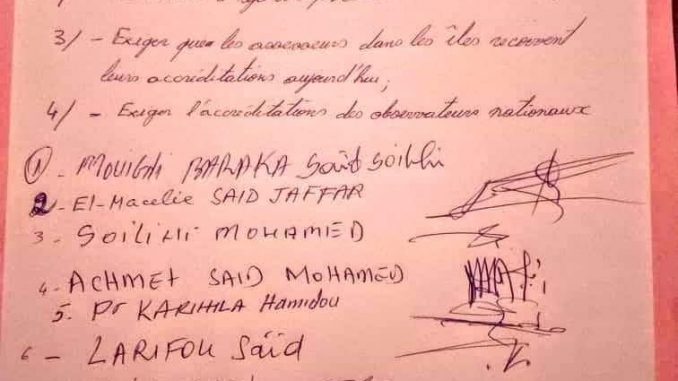 3/ - Exiger que les assesseurs dans les îles reçoivent
leurs accréditations aujourd'hui;
4/ - Exiger l'accréditations des observateurs nationaux
1 - MOUIGNI BARAKA Saïd Soilihi
2 - El-Macelie SAID JAFFAR
3 - SOILIHI MOHAMED
4 - ACHMET SAID MOHAMED
5. Pr KARIHILA Hamidou
6 - LARIFOU Saïd